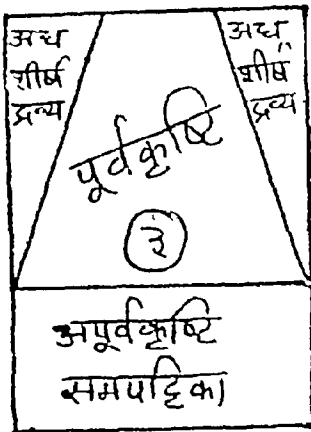 अध
शीर्ष
द्रव्य
अध
शीर्ष
द्रव्य
पूर्वकृष्टि
३
अपूर्वकृष्टि
समपट्टिका